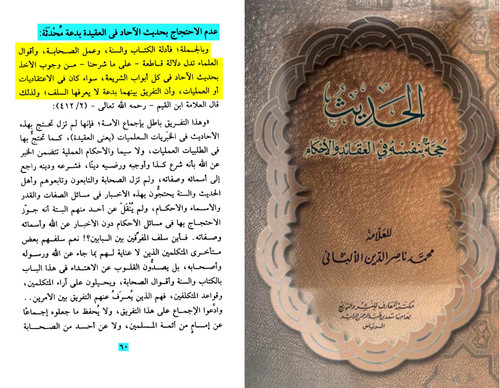 عدم الاحتجاج بحديث الآحاد فى العقيدة بدعة مُحْدَثَة:
وبالجملة؛ فأدلة الكتـاب والسنة، وعمل الصحـابـة، وأقوال
العلماء تدل دلالة قـاطعـة - على ما شرحنا - من وجوب الأخذ
بحديث الآحاد فى كل أبواب الشريعة، سواء كان فى الاعتقاديات
أو العمليات، وأن التفريق بينهما بدعة لا يعرفها السلف؛ ولذلك
قال العلامة ابن القيم - رحمه الله تعالى - (٤١٢/٢):
«وهذا التفريق باطل بإجماع الأمـة؛ فإنها لـم تزل تحـتـج بهذه
الأحاديث فى الخَبَريات العـلميات (يعنى العقيدة)، كما تحتج بها
فى الطلبيات العمليات، ولا سيما والأحكام العملية تتضمن الخبر
عن الله بأنه شرع كذا وأوجبه ورضيه دينًا، فشرعه ودينه راجع
إلى أسمائه وصفاته، ولم تزل الصحابة والتابعون وتابعوهم وأهل
الحديث والسنة يحتجُّون بهذه الأخبار فى مسائل الصفات والقدر
والأسماء والأحكام، ولم يُنْقَلْ عن أحد منهم البتة أنه جـوَّز
الاحتجاج بها فى مسائل الأحكام دون الإخبار عن الله وأسمائه
وصفاته. فـأين سلف المفرِّقين بين البـابين؟! نعم سلفـهم بعض
متأخرى المتكلمين الذين لا عناية لهم بما جاء عن الله ورسوله
وأصحابه، بل يصـدُّون القلوب عن الاهتداء فى هذا البـاب
بالكتاب والسنة وأقوال الصحابة، ويحيلون على آراء المتكلمين،
وقواعد المتكلفين، فهم الذين يُعرفُ عنهم التفريق بين الأمرين..
وادَّعوا الإجماع على هذا التفريق، ولا يُحفظ ما جعلوه إجماعًا
عن إمـام من أئمة المسلمين، ولا عن أحد من الصحـابـة
٦٠
الحديث
حجة بنفسه في العقائد والأحكام
للعلامة
محمد ناصر الدين الألباني
مكتبة المعارف للنشر والتوزيع
لصاحبها سعد بن عبد الرحمن الراشد
الرياض